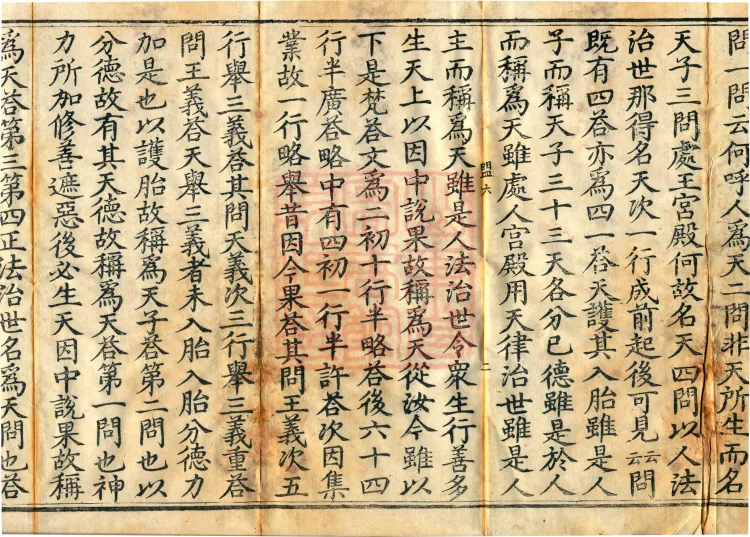 問一問云何呼人爲天二問非天所生而名
天子三問處王宮殿何故名天四問以人法
治世那得名天次一行成前起後可見云云問
既有四荅亦爲四一荅天護其入胎雖是人
子而稱天子三十三天各分已德雖是於人
而稱爲天雖處人宮殿用天律治世雖是人
盟六
二
主而稱爲天雖是人法治世令衆生行善多
生天上以因中說果故稱爲天從汝今雖以
下是梵荅文爲二初十行半略荅後六十四
行半廣荅略中有四初一行半許荅次因集
業故一行略舉昔因今果荅其問王義次五
行舉三義荅其問天義次三行舉三義重荅
問王義荅天舉三義者未入胎入胎分德力
加是也以護胎故稱爲天子荅第二問也以
分德故有其天德故稱爲天荅第一問也神
力所加修善遮惡後必生天因中說果故稱
爲天荅第三第四正法治世名爲天問也荅